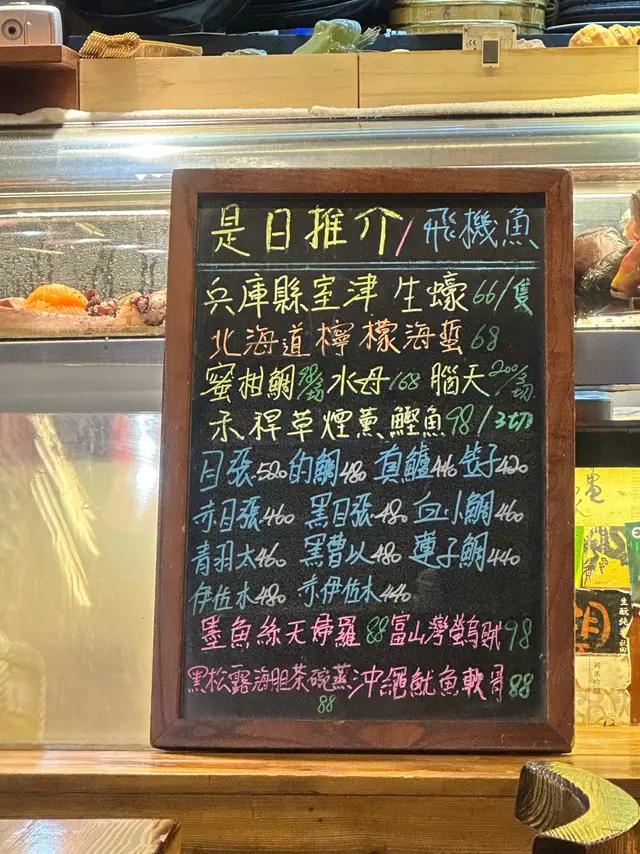 是日推介/飛機魚
兵庫縣室津 生蠔66/隻
北海道檸檬海蜇68
蜜柑鯛98/3切 水母/68 腦天200/3切
禾稈草煙薰鰹魚98/3切
目張520 的鯛480 真鱸440 先子420
赤目張460 黑目張480 血小鯛460
青羽太460 黑曹以480 連子鯛440
伊佐木480 赤伊佐木440
墨魚絲天婦羅88富山灣螢烏賊98
黑松露海胆茶碗蒸沖繩魷魚軟骨88
88
生酛純米秋田
純米吟釀